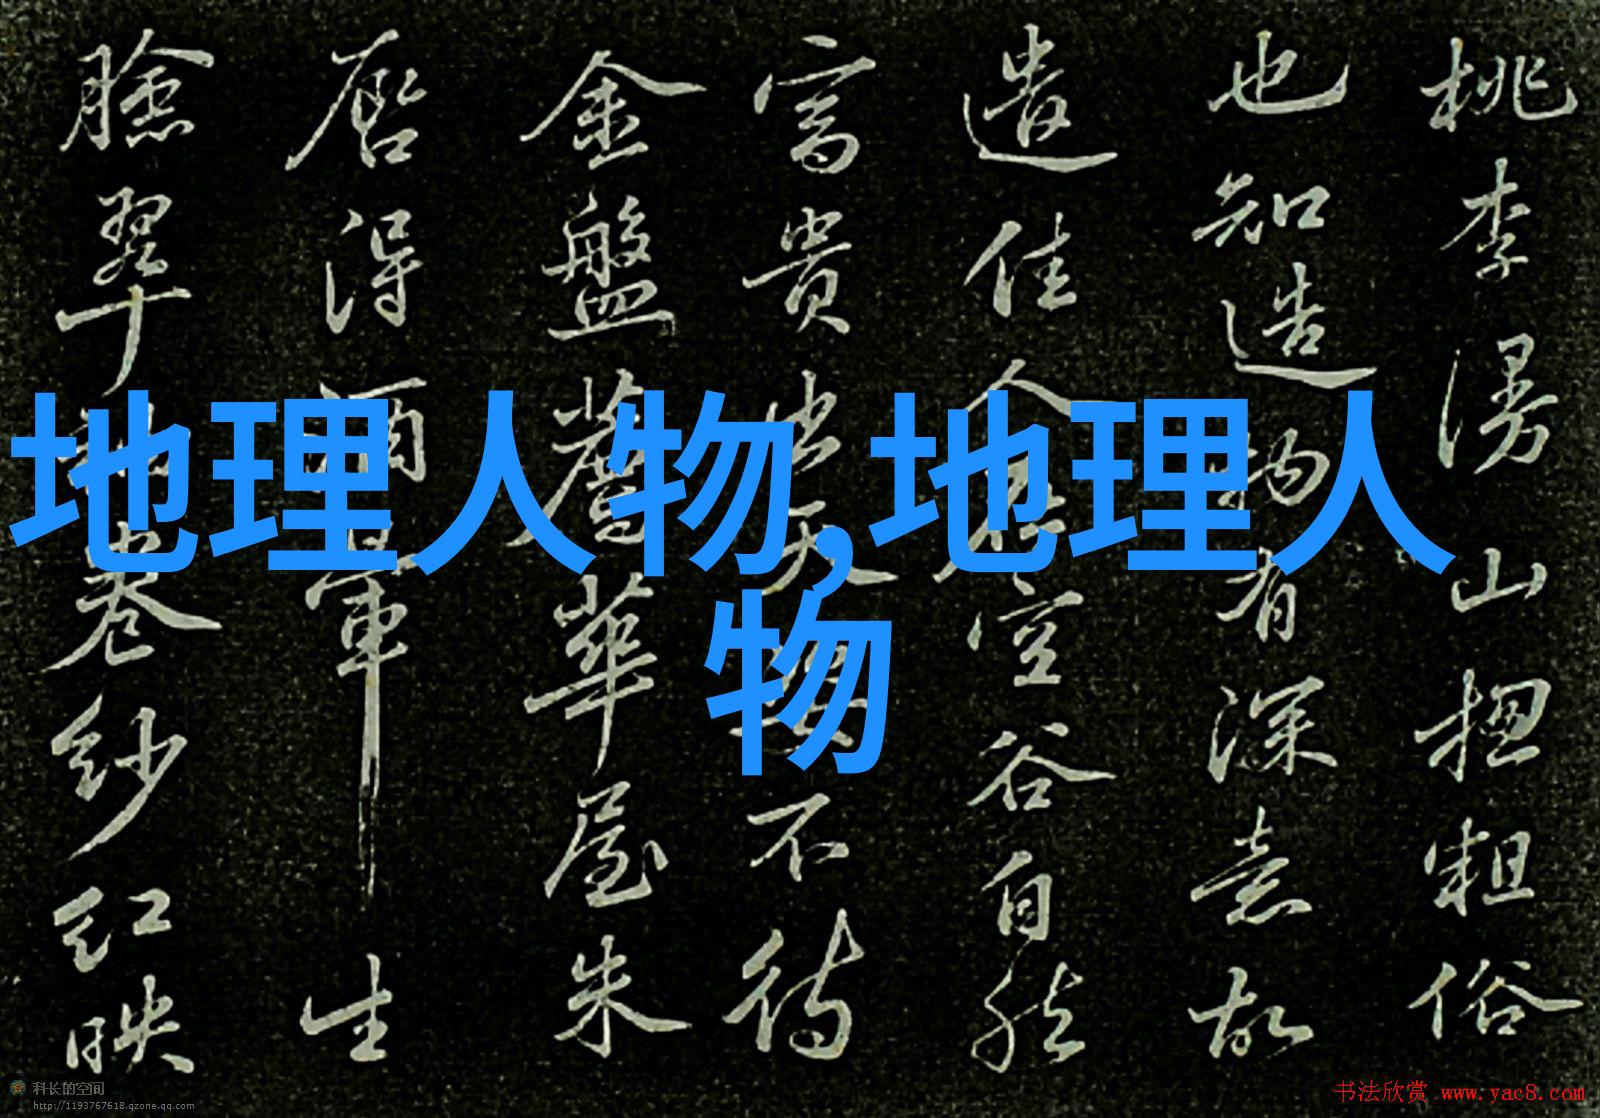 桃李漫山揔粗俗
也知造物有深意故
遣佳人在空谷自然
富貴出天姿不待
金盤薦華屋朱
唇得酒暈生
臉翠袖卷紗紅映
地理人物,地理人
物
科长的空间
http://1193767618.qzone.qq.com
书法欣赏 www.yac8.com